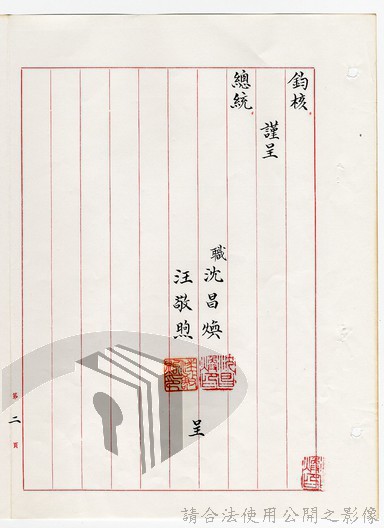 鈞核。
謹呈
總統。
職 沈昌煥
汪敬煦
呈
第二頁
請合法使用公開之影像